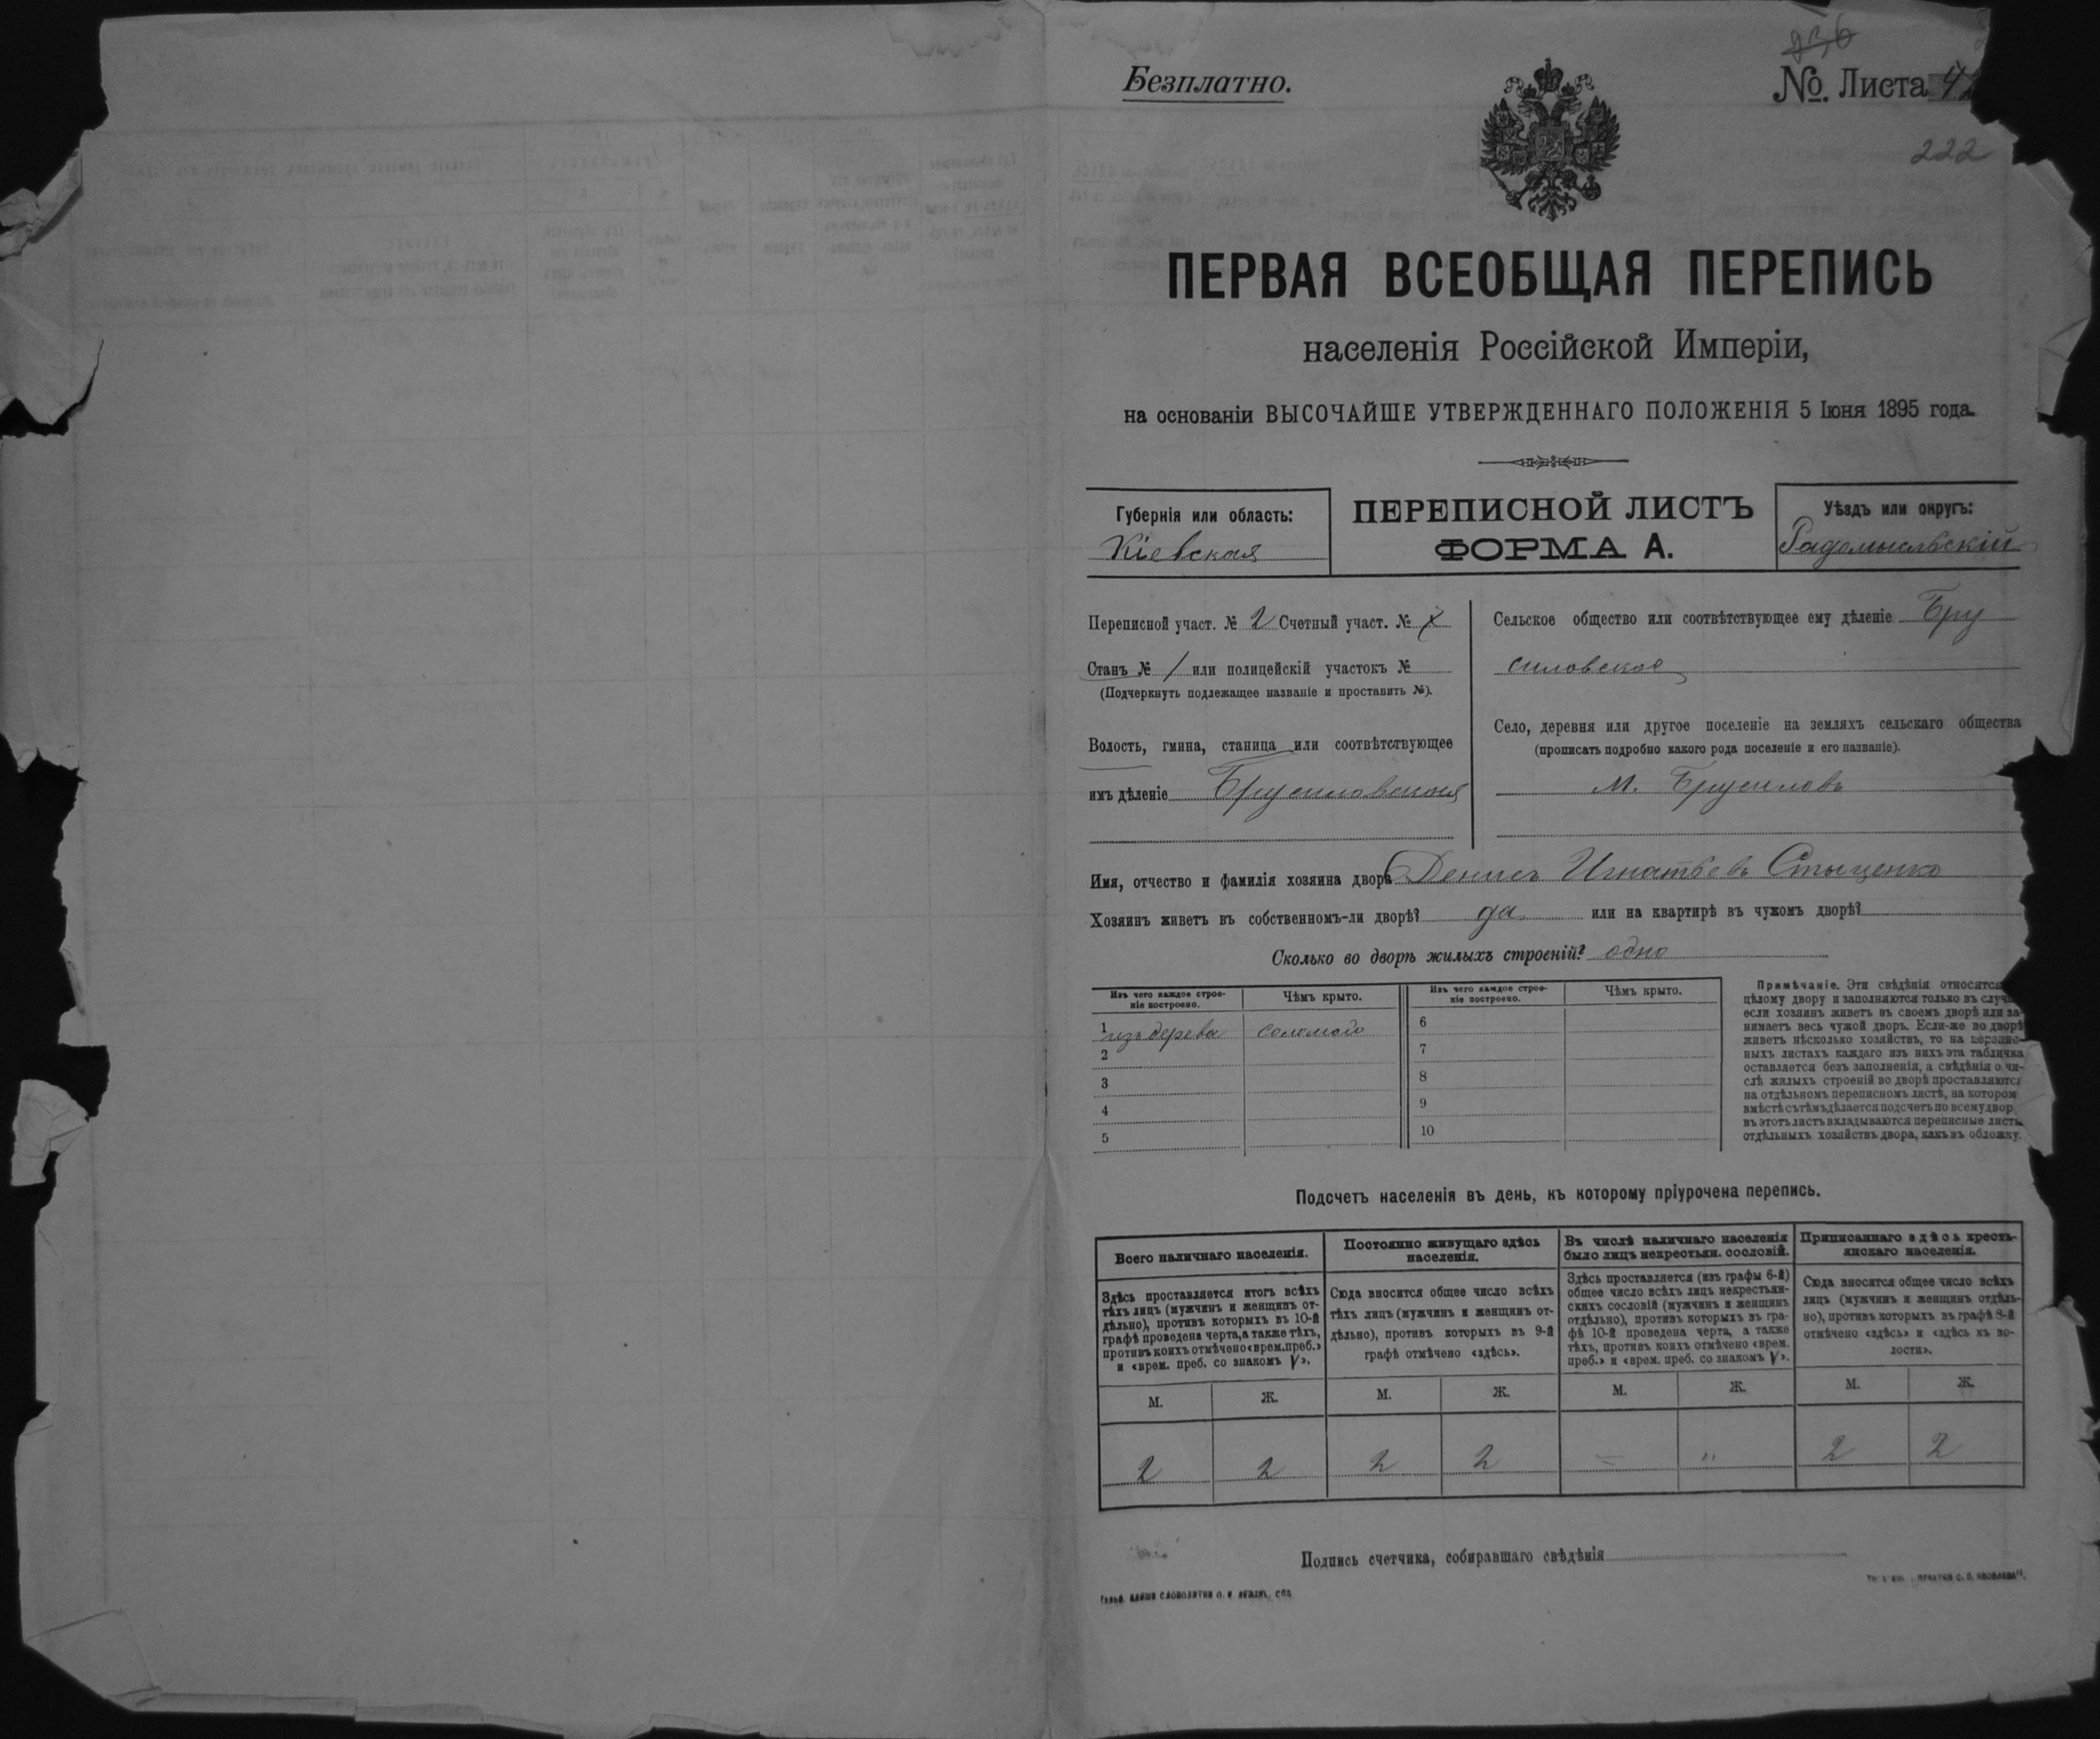 Безплатно.
236
№. Листа 4
222
ПЕРВАЯ ВСЕОБЩАЯ ПЕРЕПИСЬ
населенія Россійской Имперіи,
на основаніи ВЫСОЧАЙШЕ УТВЕРЖДЕННАГО ПОЛОЖЕНІЯ 5 Іюня 1895 года.
Губернія или область:
Кіевская
ПЕРЕПИСНОЙ ЛИСТЪ
ФОРМА А.
Уѣздъ или округъ:
Радомысльскій
Переписной участ. № 2 Счетный участ. №
Станъ № 1 или полицейскій участокъ №
(Подчеркнуть подлежащее названіе и проставить №).
Волость, гмина, станица или соотвѣтствующее
имъ дѣленіе Брусиловская
Сельское общество или соотвѣтствующее ему дѣленіе Бру
силовское
Село, деревня или другое поселеніе на земляхъ сельскаго общества
(прописать подробно какого рода поселеніе и его названіе).
М. Брусиловъ
Имя, отчество и фамилія хозяина двора Денисъ Игнатьевъ Стыценко
Хозяинъ живетъ въ собственномъ-ли дворѣ? да или на квартирѣ въ чужомъ дворѣ?
Сколько во дворѣ жилыхъ строеній? одно
Изъ чего каждое строе-
ніе построено.
Чѣмъ крыто.
1 изъ дерева соломою
2
3
4
5
Изъ чего каждое строе-
ніе построено.
Чѣмъ крыто.
6
7
8
9
10
Примѣчаніе. Эти свѣдѣнія относятся
цѣлому двору и заполняются только въ случа
если хозяинъ живетъ въ своемъ дворѣ или за-
нимаетъ весь чужой дворъ. Если-же во дворѣ
живетъ нѣсколько хозяйствъ, то на перепис-
ныхъ листахъ каждаго изъ нихъ эта табличка
оставляется безъ заполненія, а свѣдѣнія о чи-
слѣ жилыхъ строеній во дворѣ проставляются
на отдѣльномъ переписномъ листѣ, на котором
вмѣстѣ съ тѣмъ дѣлается подсчетъ по всему двор
въ этотъ листъ вкладываются переписные листы
отдѣльныхъ хозяйствъ двора, какъ въ обложку.
Подсчетъ населенія въ день, къ которому пріурочена перепись.
Всего наличнаго населенія.
Здѣсь проставляется итогъ всѣхъ
тѣхъ лицъ (мужчинъ и женщинъ от-
дѣльно), противъ которыхъ въ 10-й
графѣ проведена черта, а также тѣхъ,
противъ коихъ отмѣчено «врем. преб.»
и «врем. преб. со знакомъ V».
М. Ж.
2 2
Постоянно живущаго здѣсь
населенія.
Сюда вносится общее число всѣхъ
тѣхъ лицъ (мужчинъ и женщинъ от-
дѣльно), противъ которыхъ въ 9-й
графѣ отмѣчено «здѣсь».
М. Ж.
2 2
Въ числѣ наличнаго населенія
было лицъ некрестьян. сословій.
Здѣсь проставляется (изъ графы 6-й)
общее число всѣхъ лицъ некрестьян-
скихъ сословій (мужчинъ и женщинъ
отдѣльно), противъ которыхъ въ гра-
фѣ 10-й проведена черта, а также
тѣхъ, противъ коихъ отмѣчено «врем.
преб.» и «врем. преб. со знакомъ V».
М. Ж.
— "
Приписаннаго здѣсь кресть-
янскаго населенія.
Сюда вносится общее число всѣхъ
лицъ (мужчинъ и женщинъ отдѣль-
но), противъ которыхъ въ графѣ 8-й
отмѣчено «здѣсь» и «здѣсь къ во-
лости».
М. Ж.
2 2
Подпись счетчика, собиравшаго свѣдѣнія
СЛОВОЛИТНИ О. И. ЛЕМАНЪ, СПБ.
ПЕЧАТНЯ С. П. ЯКОВЛЕВА".